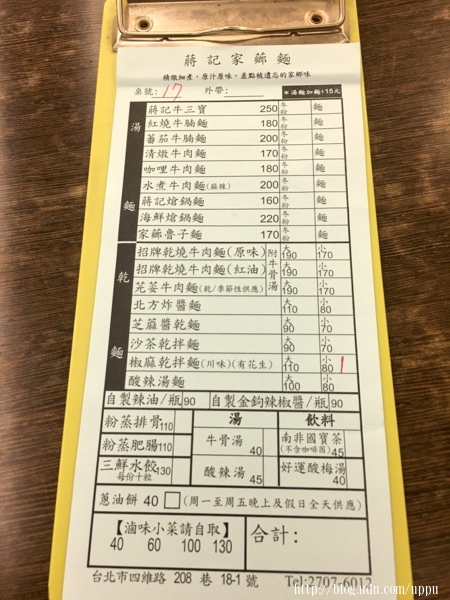 蔣記家薌麵
精燉細煮，原汁原味，差點被遺忘的家鄉味
桌號：17 外帶：
＊湯麵加麵+15元
湯麵
蔣記牛三寶 250 冬粉 麵
紅燒牛腩麵 180 冬粉 麵
蕃茄牛腩麵 200 冬粉 麵
清燉牛肉麵 170 冬粉 麵
咖哩牛肉麵 180 冬粉 麵
水煮牛肉麵(麻辣) 200 冬粉 麵
蔣記熗鍋麵 160 冬粉 麵
海鮮熗鍋麵 220 冬粉 麵
家薌魯子麵 170 冬粉 麵
乾麵
招牌乾燒牛肉麵(原味) 附牛骨湯 大190 小170
招牌乾燒牛肉麵(紅油) 大190 小170
芫荽牛肉麵(乾/季節性供應) 大190 小170
北方炸醬麵 大110 小80
芝蔴醬乾麵 大90 小70
沙茶乾拌麵 大90 小70
椒麻乾拌麵(川味)(有花生) 大110 小80 1
酸辣湯麵 大100 小80
自製辣油/瓶90 自製金鉤辣椒醬/瓶90
粉蒸排骨110 湯 飲料
粉蒸肥腸110 牛骨湯 40 南非國寶茶(不含咖啡因) 45
三鮮水餃130 每份十粒 酸辣湯 45 好運酸梅湯 40
蔥油餅 40 (周一至周五晚上及假日全天供應)
【滷味小菜請自取】 合計：
40 60 100 130
台北市四維路 208 巷 18-1 號 Tel:2707-6012
http://blog.udn.com/uppu